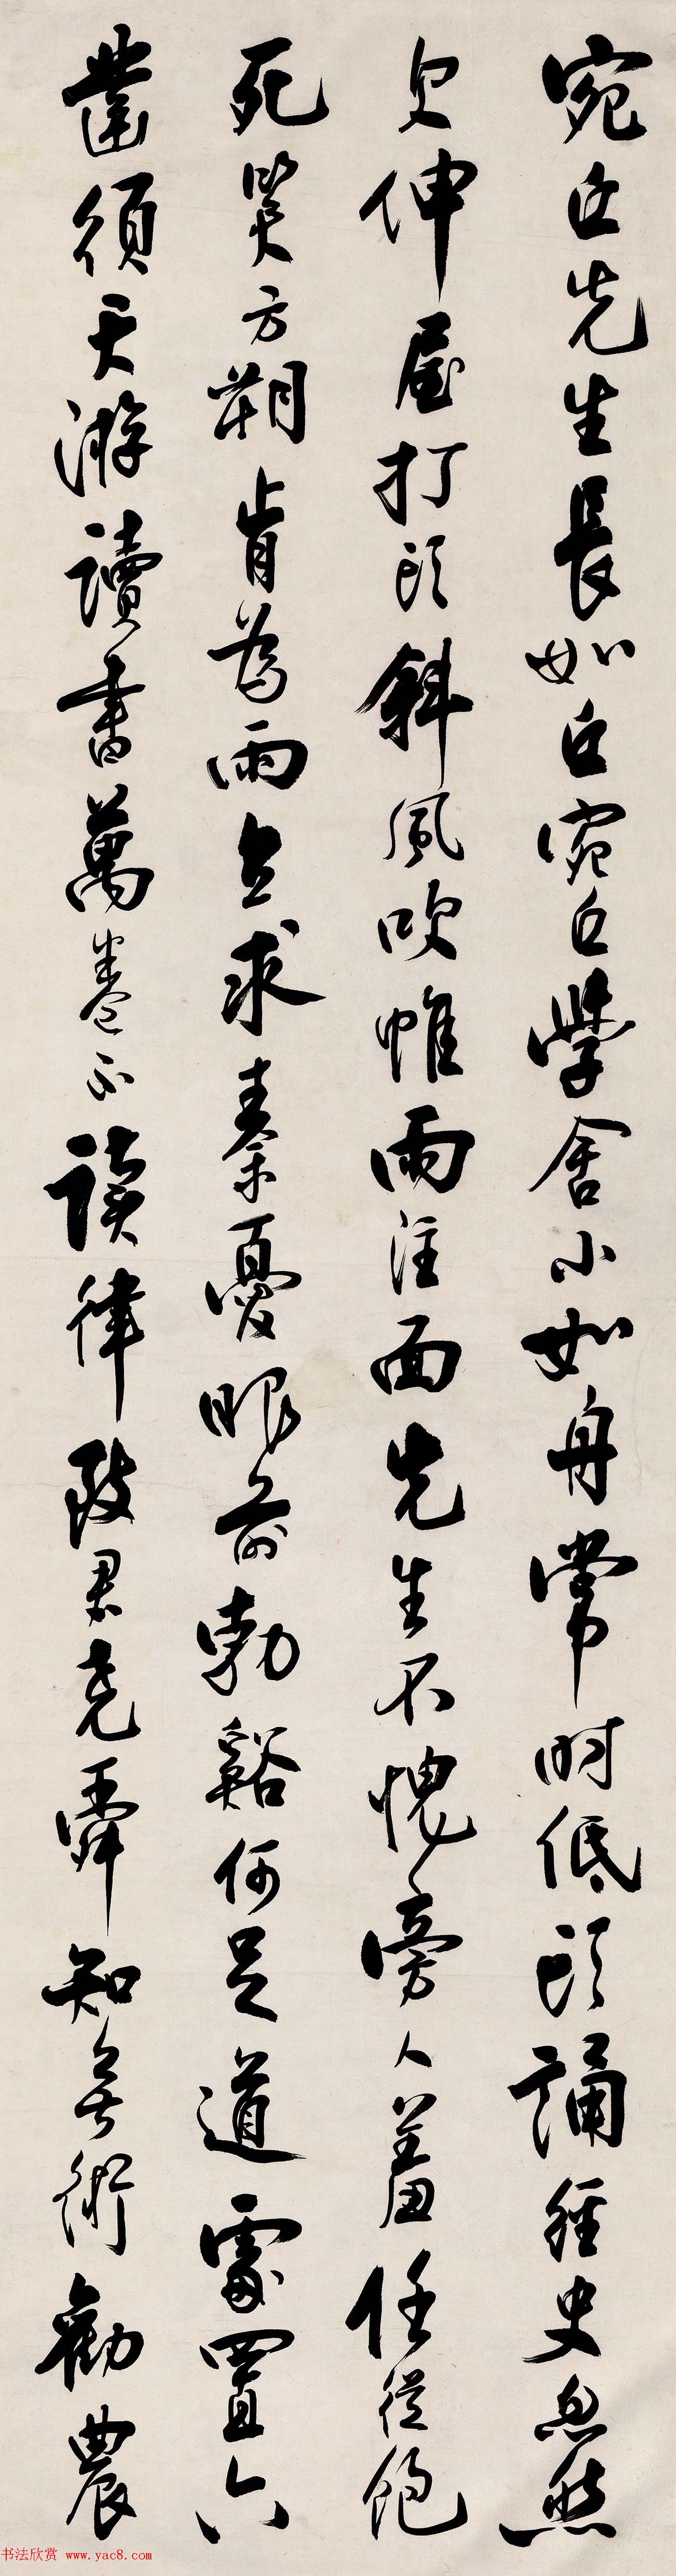 宛丘先生長如丘宛丘學舍小如舟常時低頭誦經史忽然
欠伸屋打頭斜風吹帷雨注面先生不愧旁人羞任從飽
死笑方朔肯為雨立求秦憂眼前勃谿何足道處置六
鑿須天游讀書萬卷不讀律致君堯舜知無術勸農
书法欣赏 www.yac8.com